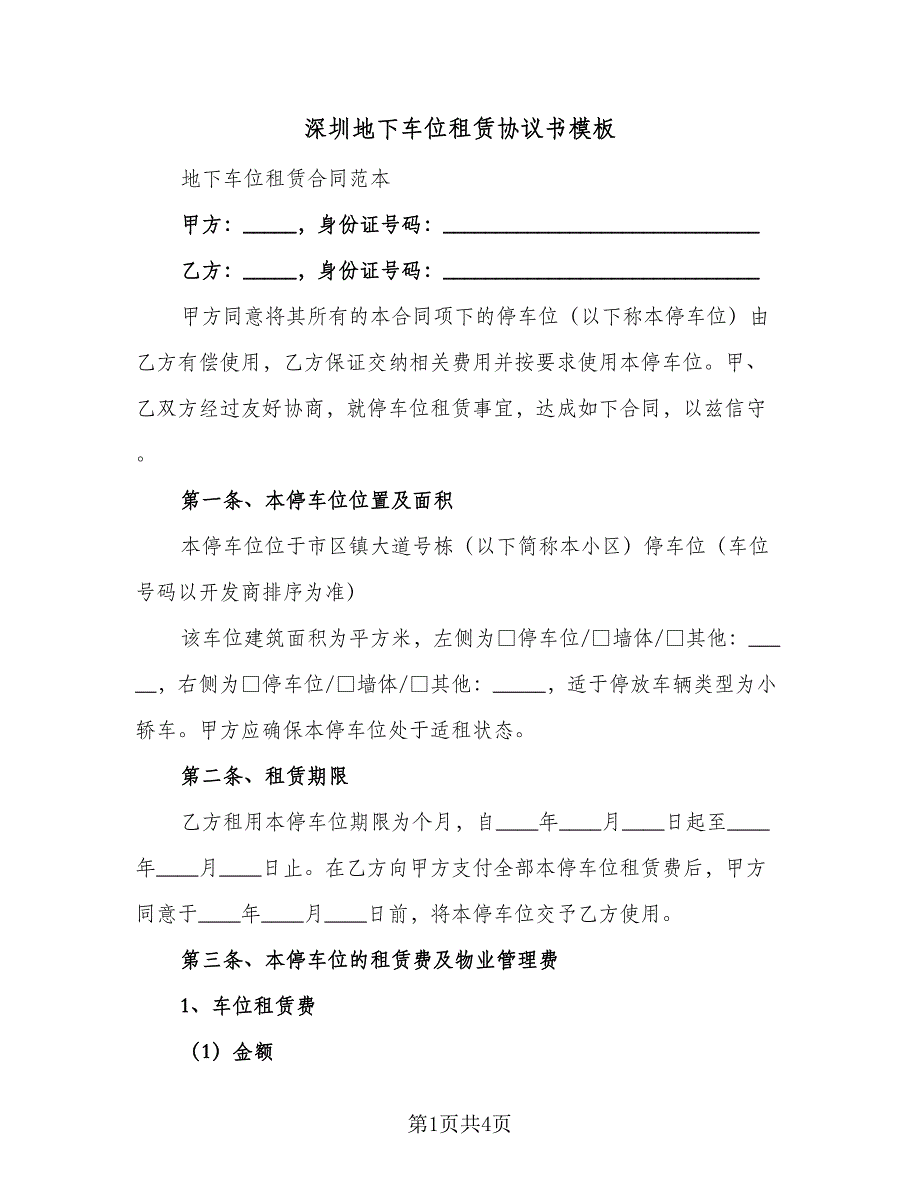 深圳地下车位租赁协议书模板
地下车位租赁合同范本
甲方：_____，身份证号码：______________________________
乙方：_____，身份证号码：______________________________
甲方同意将其所有的本合同项下的停车位（以下称本停车位）由
乙方有偿使用，乙方保证交纳相关费用并按要求使用本停车位。甲、
乙双方经过友好协商，就停车位租赁事宜，达成如下合同，以兹信守
。
第一条、本停车位位置及面积
本停车位位于市区镇大道号栋（以下简称本小区）停车位（车位
号码以开发商排序为准）
该车位建筑面积为平方米，左侧为□停车位/□墙体/□其他：___
__，右侧为□停车位/□墙体/□其他：_____，适于停放车辆类型为小
轿车。甲方应确保本停车位处于适租状态。
第二条、租赁期限
乙方租用本停车位期限为个月，自____年____月____日起至____
年____月____日止。在乙方向甲方支付全部本停车位租赁费后，甲方
同意于____年____月____日前，将本停车位交予乙方使用。
第三条、本停车位的租赁费及物业管理费
1、车位租赁费
（1）金额
第1页共4页